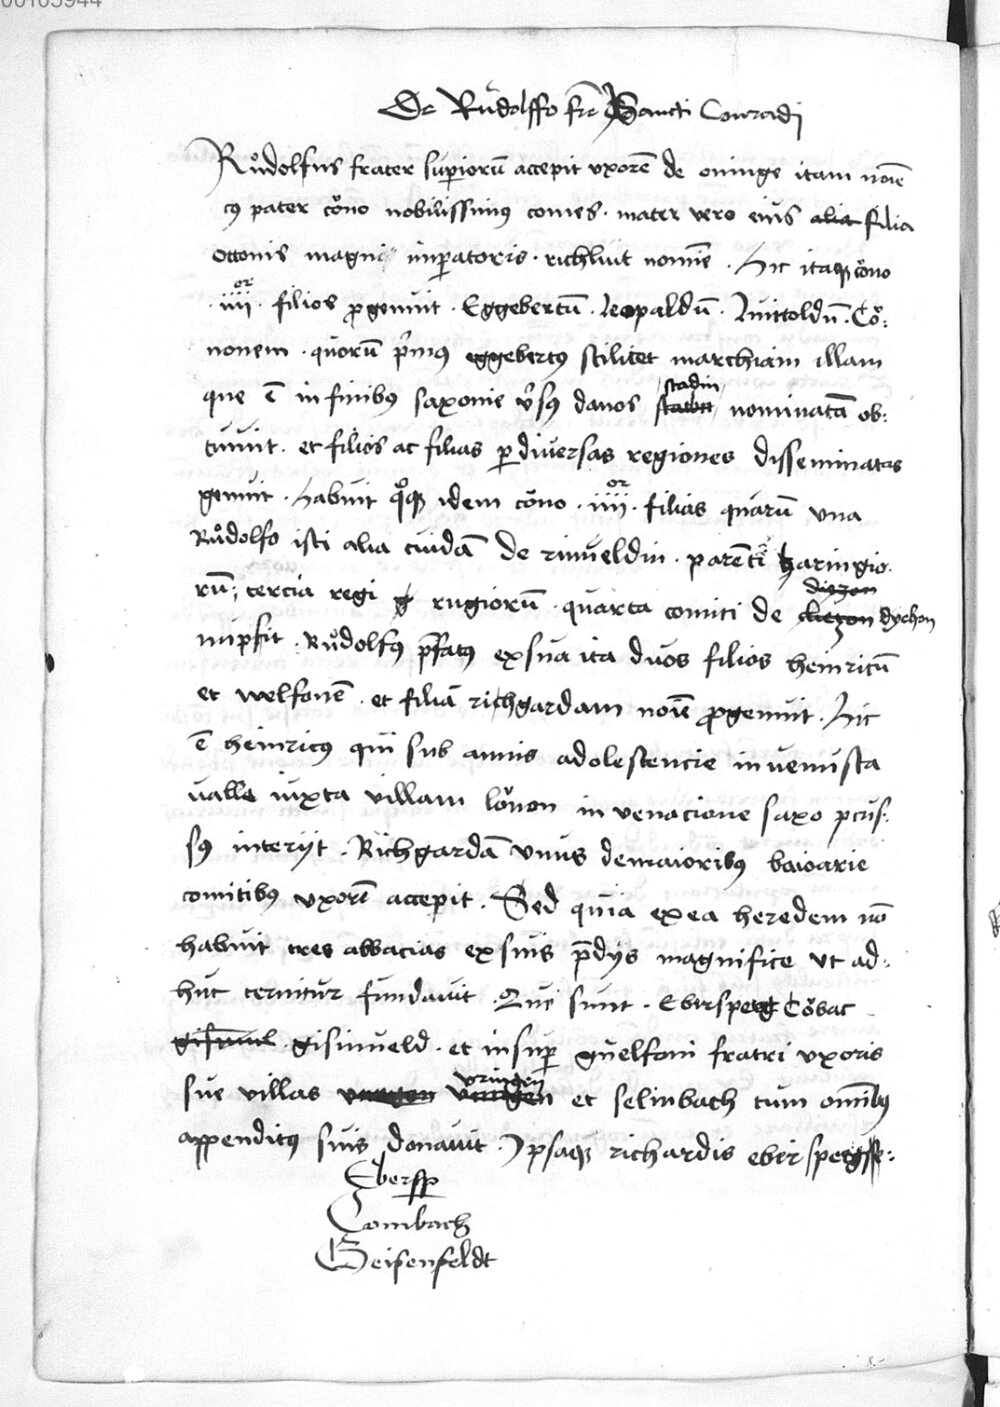 00105944
De Růdolffo fr̄e Sancti Conradi
Růdolfus frater superiorū accepit uxorē de oninge itam noīe
cꝰ pater cǒno nobilissimꝰ comes · mater vero eius alia filia
ottonis magni imꝑatoris · richlint nomīe · Hic itaqꝫ cǒno
· iiii or · filios ꝓgenuit · Eggebertū · leopaldū · Luittoldū · Cǒ:
nonem · quorū pͥmus eggebertꝰ scilicet marchiam illam
que ē in finibꝰ saxonie v̓sꝰ danos staden stadin nominatā ob:
tinuit · et filios ac filias ꝑ diversas regiones disseminatas
genuit · Habuit qͦqꝫ idem cǒno · iiii or · filias quarū una
Růdolfo isti alia cuidā de rinveldin · parenti zaringio·
rū; tercia regi rugiorū · quarta comiti de diezon dychon
nupsit · Růdolfꝰ p̄fatꝰ ex sua ita duos filios heinricū
et welfonē · et filiā richgardam noīe ꝓgenuit · Hic
ē heinricꝰ qui sub annis adolescencie in venusta
valle iuxta villam lǒnon in venacione saxo ꝑcus·
sꝰ interiit · Richgardā unus de maioribꝰ baioarie
comitibꝰ uxorē accepit · Sed quia ex ea heredem nō
habuit tres abbacias ex suis p̄dijs magnifice ut ad:
huc cernitur fundavit · Que sunt · Ebersperg Cǒbac
gisinveld · et insuꝑ guelfoni fratri uxoris
sue villas vringen et selinbach cum omībꝰ
appendicꝰ suis donavit · Ipsaqꝫ richardis ebersperg
Ebersp
Combach
Geisenfeldt